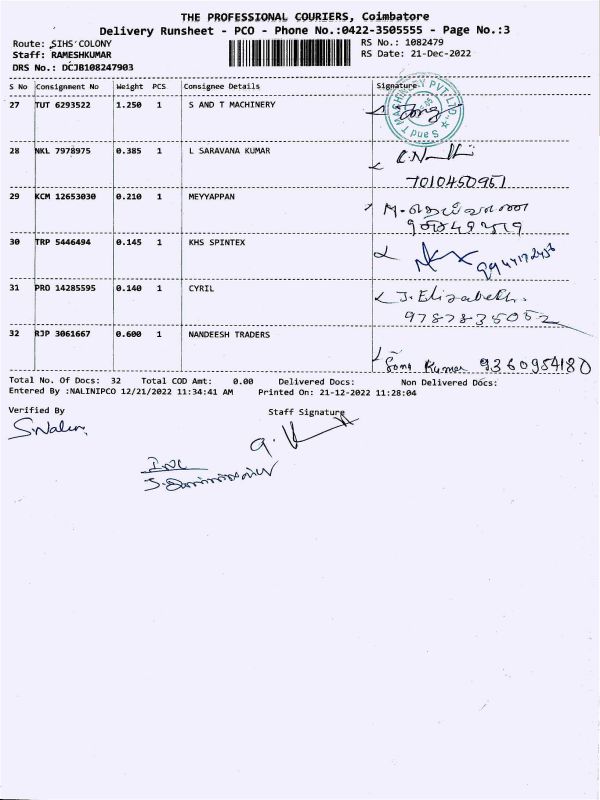 THE PROFESSIONAL COURIERS, Coimbatore
Delivery Runsheet - PCO - Phone No.:0422-3505555 - Page No.:3
Route: SIHS COLONY
RS No.: 1082479
Staff: RAMESHKUMAR
RS Date: 21-Dec-2022
DRS No.: DCJB108247903
S No Consignment No Weight PCS Consignee Details Signature
27 TUT 6293522 1.250 1 S AND T MACHINERY
S and T MACHINERY PVT. LTD.
28 NKL 7978975 0.385 1 L SARAVANA KUMAR
7010450951
29 KCM 12653030 0.210 1 MEYYAPPAN
30 TRP 5446494 0.145 1 KHS SPINTEX
31 PRO 14285595 0.140 1 CYRIL J. Elizabeth.
9787835052
32 RJP 3061667 0.600 1 NANDEESH TRADERS
Kumar 9360954180
Total No. Of Docs: 32 Total COD Amt: 0.00 Delivered Docs: Non Delivered Docs:
Entered By :NALINIPCO 12/21/2022 11:34:41 AM Printed On: 21-12-2022 11:28:04
Verified By Staff Signature